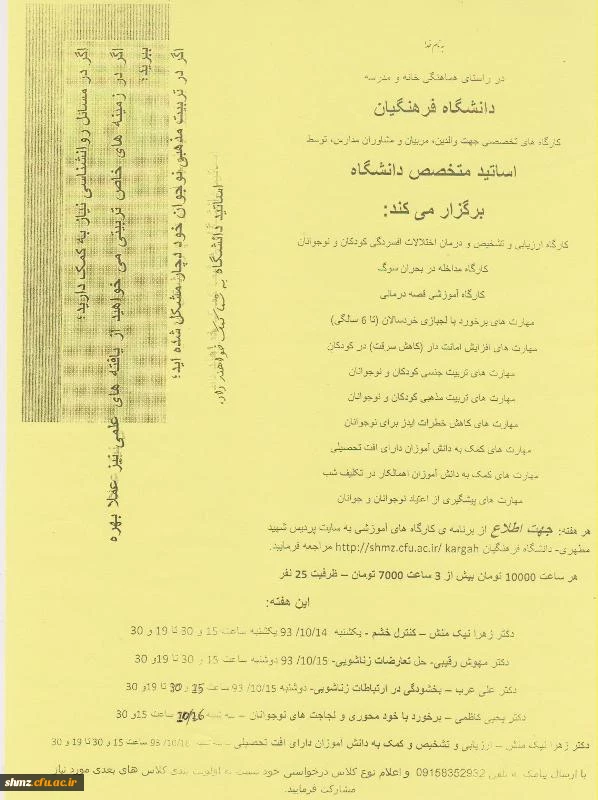 به نام خدا
در راستای هماهنگی خانه و مدرسه
دانشگاه فرهنگیان
کارگاه های تخصصی جهت والدین، مربیان و مشاوران مدارس، توسط
اساتید متخصص دانشگاه
برگزار می کند:
کارگاه ارزیابی و تشخیص و درمان اختلالات افسردگی کودکان و نوجوانان
کارگاه مداخله در بحران سوگ
کارگاه آموزشی قصه درمانی
مهارت های برخورد با لجبازی خردسالان (تا 6 سالگی)
مهارت های افزایش امانت دار (کاهش سرقت) در کودکان
مهارت های تربیت جنسی کودکان و نوجوانان
مهارت های تربیت مذهبی کودکان و نوجوانان
مهارت های کاهش خطرات ایدز برای نوجوانان
مهارت های کمک به دانش آموزان دارای افت تحصیلی
مهارت های کمک به دانش آموزان اهمالکار در تکلیف شب
مهارت های پیشگیری از اعتیاد نوجوانان و جوانان
هر هفته: جهت اطلاع از برنامه ی کارگاه های آموزشی به سایت پردیس شهید
مطهری- دانشگاه فرهنگیان http://shmz.cfu.ac.ir/ kargah مراجعه فرمایید.
هر ساعت 10000 تومان بیش از 3 ساعت 7000 تومان – ظرفیت 25 نفر
این هفته:
دکتر زهرا نیک منش – کنترل خشم - یکشنبه 93 /10/14 یکشنبه ساعت 15 و 30 تا 19 و 30
دکتر مهوش رقیبی- حل تعارضات زناشویی- 93 /10/15 دوشنبه ساعت 15 و 30 تا 19و 30
دکتر علی عرب – بخشودگی در ارتباطات زناشویی- دوشنبه 93 /10/15 ساعت 15 و 30 تا 19و 30
دکتر یحیی کاظمی – برخورد با خود محوری و لجاجت های نوجوانان – سه شنبه 10/16 ساعت 15و 30
دکتر زهرا نیک منش – ارزیابی و تشخیص و کمک به دانش آموزان دارای افت تحصیلی – سه شنبه 93 /10/16 ساعت 15 و 30 تا 19 و 30
با ارسال پیامک به تلفن 09158352932 و اعلام نوع کلاس درخواستی خود نسبت به اولویت بندی کلاس های بعدی مورد نیاز
مشارکت فرمایید.
اگر در مسائل روانشناسی نیاز به کمک دارید؛
اگر در زمینه های خاص تربیتی می خواهید از یافته های علمی نیز عملا بهره
ببرید؛
اگر در تربیت مذهبی نوجوان خود دچار مشکل شده اید؛
اساتید دانشگاه به شما کمک خواهند کرد.
shmz.cfu.ac.ir